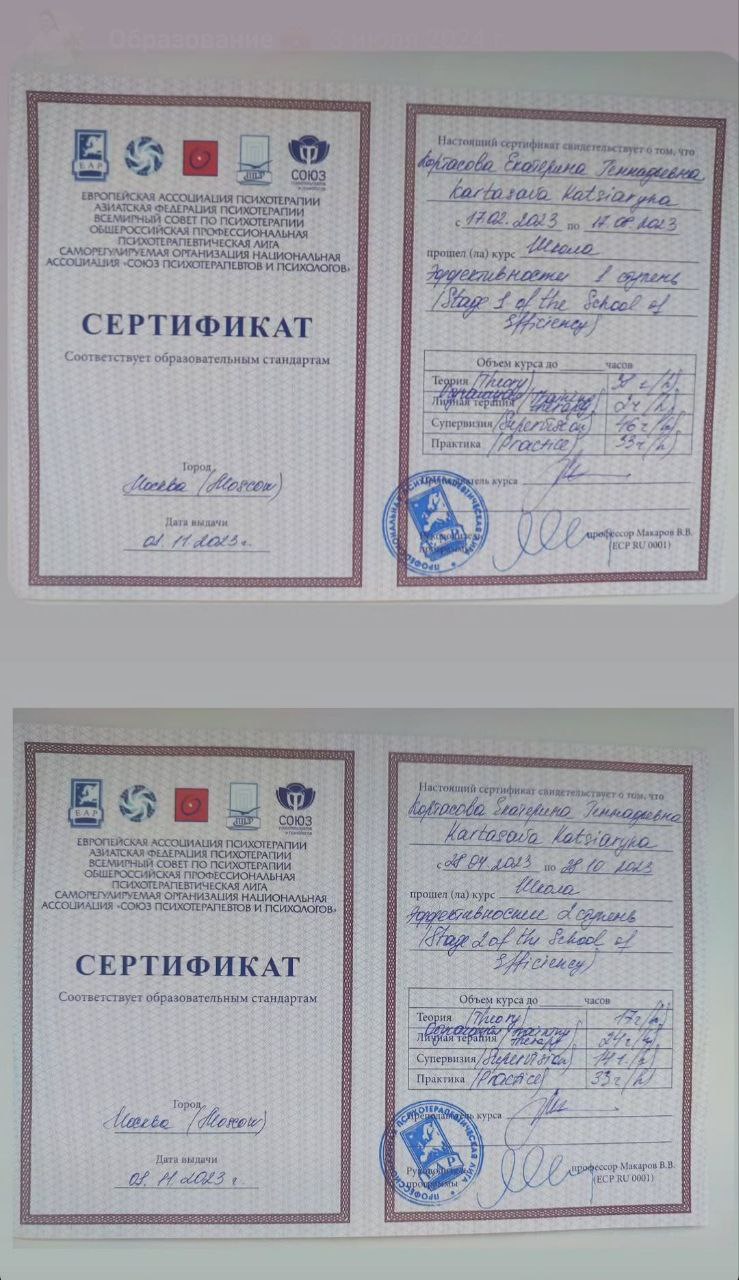 Образование
3 июля 2024 г.
ЕАР
ППЛ
СОЮЗ
ЕВРОПЕЙСКАЯ АССОЦИАЦИЯ ПСИХОТЕРАПИИ
АЗИАТСКАЯ ФЕДЕРАЦИЯ ПСИХОТЕРАПИИ
ВСЕМИРНЫЙ СОВЕТ ПО ПСИХОТЕРАПИИ
ОБЩЕРОССИЙСКАЯ ПРОФЕССИОНАЛЬНАЯ
ПСИХОТЕРАПЕВТИЧЕСКАЯ ЛИГА
САМОРЕГУЛИРУЕМАЯ ОРГАНИЗАЦИЯ НАЦИОНАЛЬНАЯ
АССОЦИАЦИЯ «СОЮЗ ПСИХОТЕРАПЕВТОВ И ПСИХОЛОГОВ»
СЕРТИФИКАТ
Соответствует образовательным стандартам
Город
Москва (Moscow)
Дата выдачи
Настоящий сертификат свидетельствует о том, что
Картасова Екатерина Геннадьевна
Kartasava Katsiaryna
с 17.02.2023 по 17.08.2023
прошел (ла) курс Школа
Эффективности 1 ступень
(Stage 1 of the School of
Efficiency)
Объем курса до часов
Теория (Theory)
Личная терапия (training therapy)
Супервизия (Supervision) 16 ч/(h)
Практика (Practice) 33 ч/(h)
Преподаватель курса
Руководитель
программы
профессор Макаров В.В.
(ECP RU 0001)
ПРОФЕССИОНАЛЬНАЯ ПСИХОТЕРАПЕВТИЧЕСКАЯ ЛИГА
ЕАР
ППЛ
СОЮЗ
ЕВРОПЕЙСКАЯ АССОЦИАЦИЯ ПСИХОТЕРАПИИ
АЗИАТСКАЯ ФЕДЕРАЦИЯ ПСИХОТЕРАПИИ
ВСЕМИРНЫЙ СОВЕТ ПО ПСИХОТЕРАПИИ
ОБЩЕРОССИЙСКАЯ ПРОФЕССИОНАЛЬНАЯ
ПСИХОТЕРАПЕВТИЧЕСКАЯ ЛИГА
САМОРЕГУЛИРУЕМАЯ ОРГАНИЗАЦИЯ НАЦИОНАЛЬНАЯ
АССОЦИАЦИЯ «СОЮЗ ПСИХОТЕРАПЕВТОВ И ПСИХОЛОГОВ»
СЕРТИФИКАТ
Соответствует образовательным стандартам
Город
Москва (Moscow)
Дата выдачи
Настоящий сертификат свидетельствует о том, что
Картасова Екатерина Геннадьевна
Kartasava Katsiaryna
с 28.04.2023 по 28.10.2023
прошел (ла) курс Школа
Эффективности 2 ступень
(Stage 2 of the School of
Efficiency)
Объем курса до часов
Теория (Theory) 17 ч/(h)
Личная терапия (training therapy) 24 ч/(h)
Супервизия (Supervision) 14 ч/(h)
Практика (Practice) 33 ч/(h)
Преподаватель курса
Руководитель
программы
профессор Макаров В.В.
(ECP RU 0001)
ПРОФЕССИОНАЛЬНАЯ ПСИХОТЕРАПЕВТИЧЕСКАЯ ЛИГА